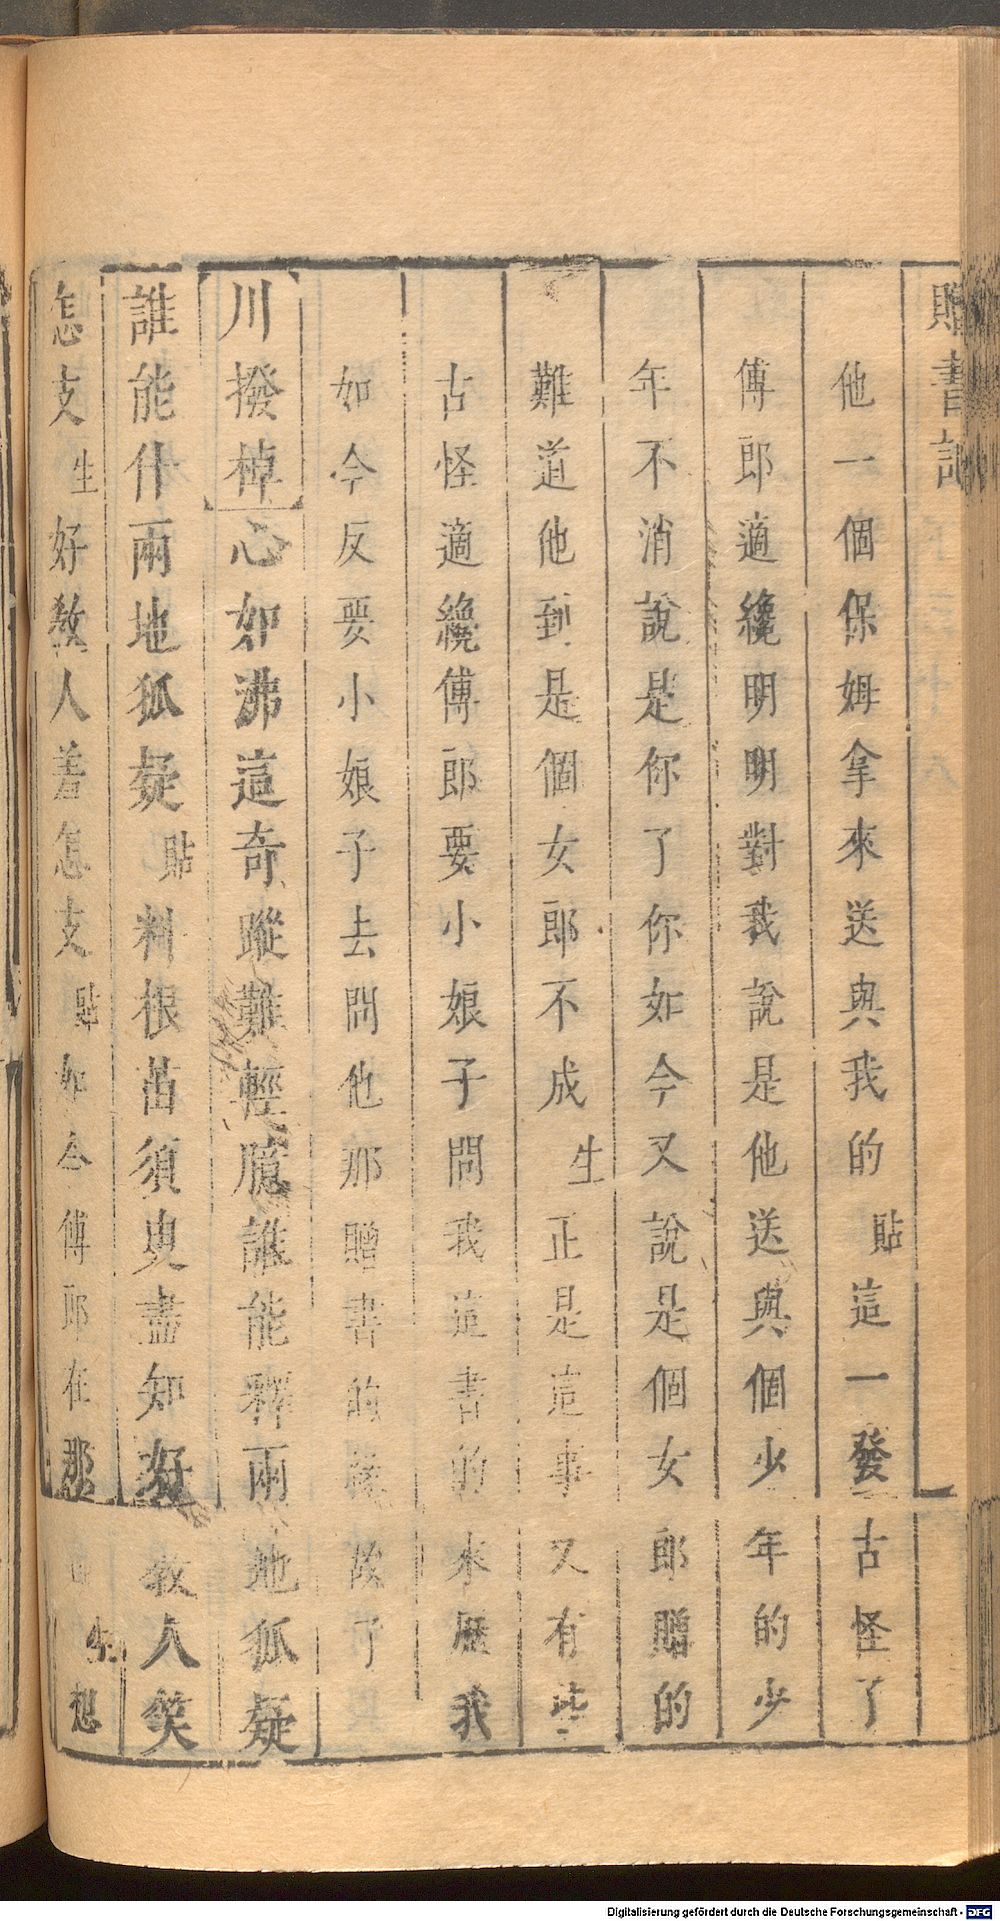 贈書記
他一個保姆拿來送與我的貼這一發古怪了
傅郎適纔明明對我說是他送與個少年的少
年不消說是你了你如今又說是個女郎贈的
難道他到是個女郎不成生正是這事又有些
古怪適纔傅郎要小娘子問我這書的來歷我
如今反要小娘子去問他那贈書的緣故了
川撥棹心如沸這奇蹤難輕臆誰能釋兩地狐疑
誰能什兩地狐疑貼料根苗須臾盡知好教人笑
怎支生好教人羞怎支貼如今傅郎在那生想
Digitalisierung gefördert durch die Deutsche Forschungsgemeinschaft - DFG